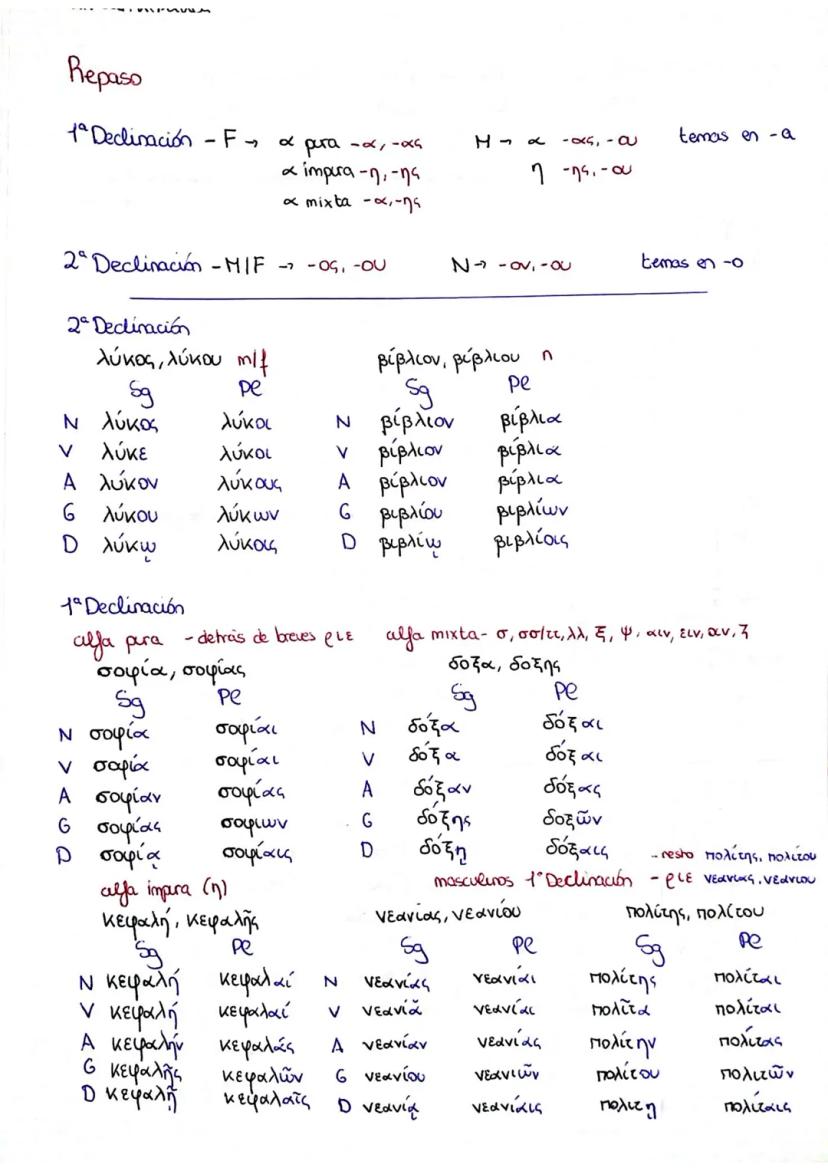 Repaso
1ª Declinación - F → α pura -α, -ας M → α -ας, -ου temas en -a
α impura -η, -ης η -ης, -ου
α mixta -α, -ης
2ª Declinación - M/F → -ος, -ου N → -ον, -ου temas en -o
2ª Declinación
λύκος, λύκου m/f βίβλιον, βίβλιου n
Sg Pl Sg Pl
N λύκος λύκοι N βίβλιον βίβλια
V λύκε λύκοι V βίβλιον βίβλια
A λύκον λύκους A βίβλιον βίβλια
G λύκου λύκων G βιβλίου βιβλίων
D λύκῳ λύκοις D βιβλίῳ βιβλίοις
1ª Declinación
alfa pura - detrás de breves ρ ι ε alfa mixta - σ, σσ/ττ, λλ, ξ, ψ, αιν, ειν, οιν, ζ
σοφία, σοφίας δοξα, δοξης
Sg Pl Sg Pl
N σοφία σοφίαι N δόξα δόξαι
V σοφία σοφίαι V δόξα δόξαι
A σοφίαν σοφίας A δόξαν δόξας
G σοφίας σοφιων G δόξης δοξῶν
D σοφίᾳ σοφίαις D δόξῃ δόξαις
- resto πολίτης, πολίτου
alfa impura (η) masculinos 1ª Declinación - ρ ι ε νεανιας, νεανιου
κεφαλή, κεφαλῆς νεανίας, νεανίου πολίτης, πολίτου
Sg Pl Sg Pl Sg Pl
N κεφαλή κεφαλαί N νεανίας νεανίαι πολίτης πολίται
V κεφαλή κεφαλαί V νεανίᾶ νεανίαι πολῖτα πολίται
A κεφαλήν κεφαλάς A νεανίαν νεανίας πολίτην πολίτας
G κεφαλῆς κεφαλῶν G νεανίου νεανιῶν πολίτου πολιτῶν
D κεφαλῇ κεφαλαῖς D νεανίᾳ νεανίαις πολιτῃ πολίταις